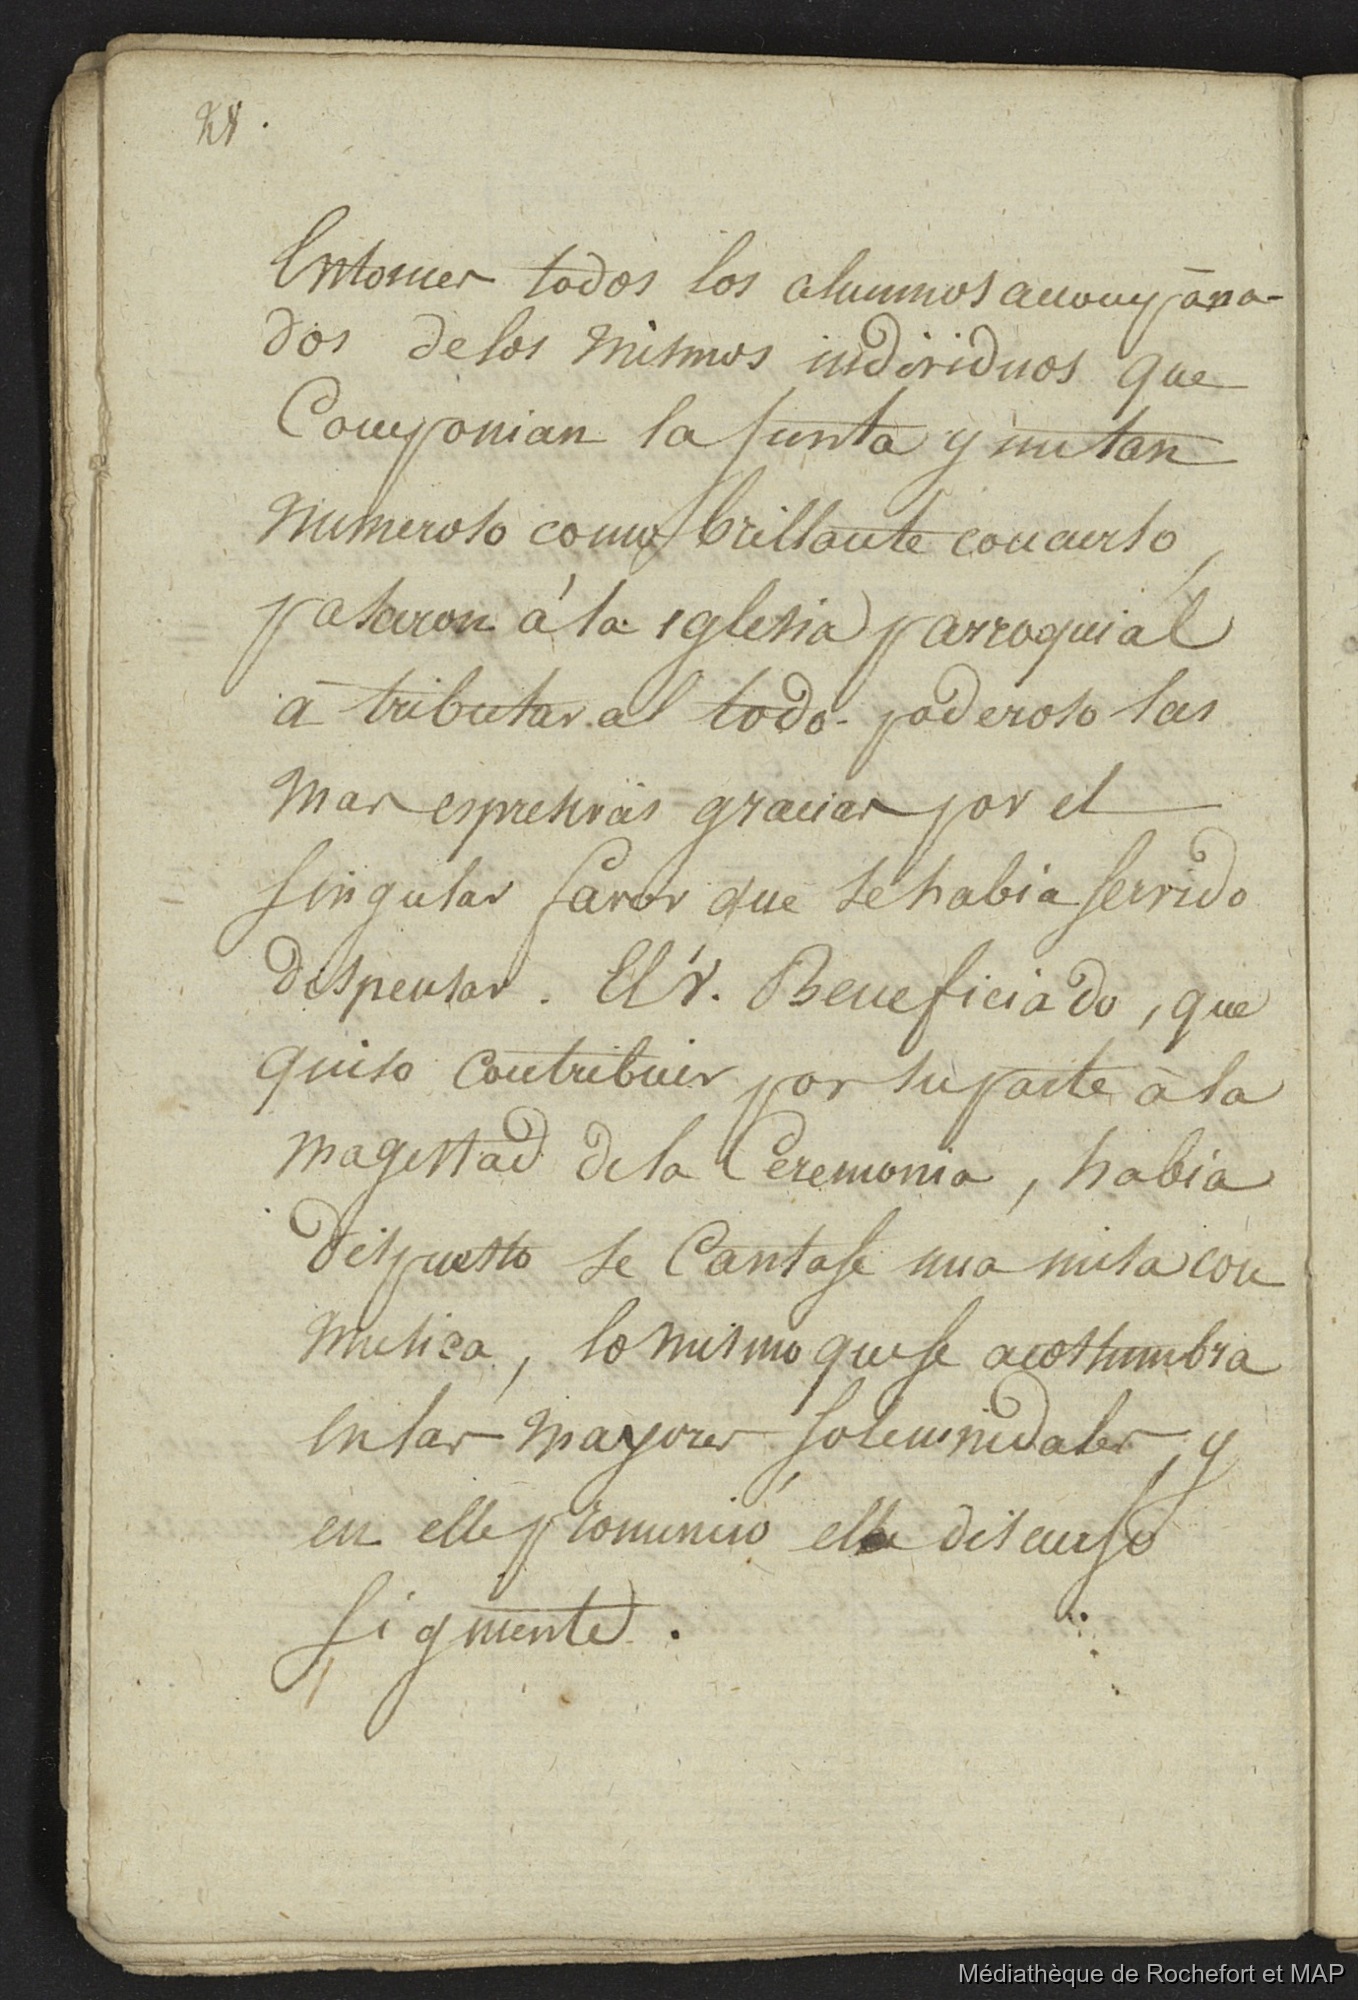 28.
Entonces todos los alumnos acompaña-
dos de los mismos individuos que
Componian la Junta y un tan
numeroso como brillante concurso,
pasaron á la iglesia parroquial
á tributar al todo-poderoso las
mas espresivas gracias por el
singular favor que se habia servido
dispensar. El Sr. Beneficiado, que
quiso contribuir por su parte à la
magestad de la Ceremonia, habia
dispuesto se Cantase una misa con
musica, lo mismo que se acostumbra
en las mayores solemnidades, y
en ella pronunció el discurso
siguiente.
Médiathèque de Rochefort et MAP